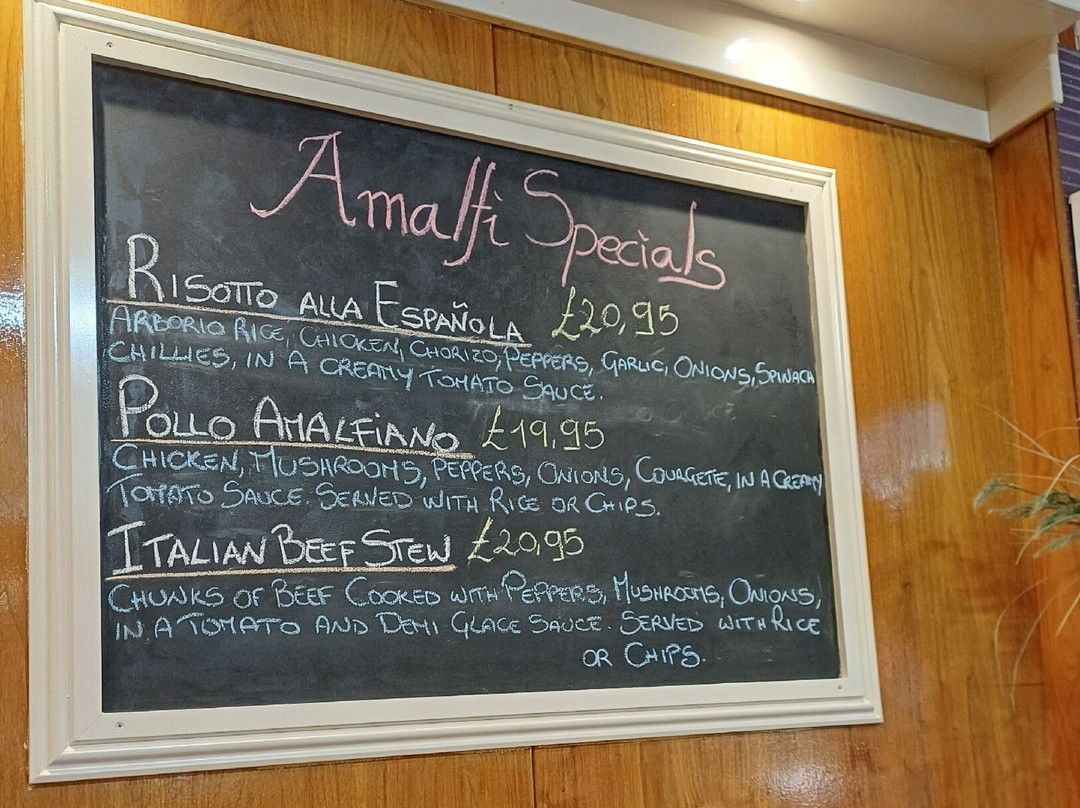 Amalfi Specials
RISOTTO ALLA ESPAÑOLA £20,95
ARBORIO RICE, CHICKEN, CHORIZO, PEPPERS, GARLIC, ONIONS, SPINACH
CHILLIES, IN A CREAMY TOMATO SAUCE.
POLLO AMALFIANO £19,95
CHICKEN, MUSHROOMS, PEPPERS, ONIONS, COURGETE, IN A CREAMY
TOMATO SAUCE. SERVED WITH RICE OR CHIPS.
ITALIAN BEEF STEW £20,95
CHUNKS OF BEEF COOKED WITH PEPPERS, MUSHROOMS, ONIONS,
IN A TOMATO AND DEMI GLACE SAUCE. SERVED WITH RICE
OR CHIPS.